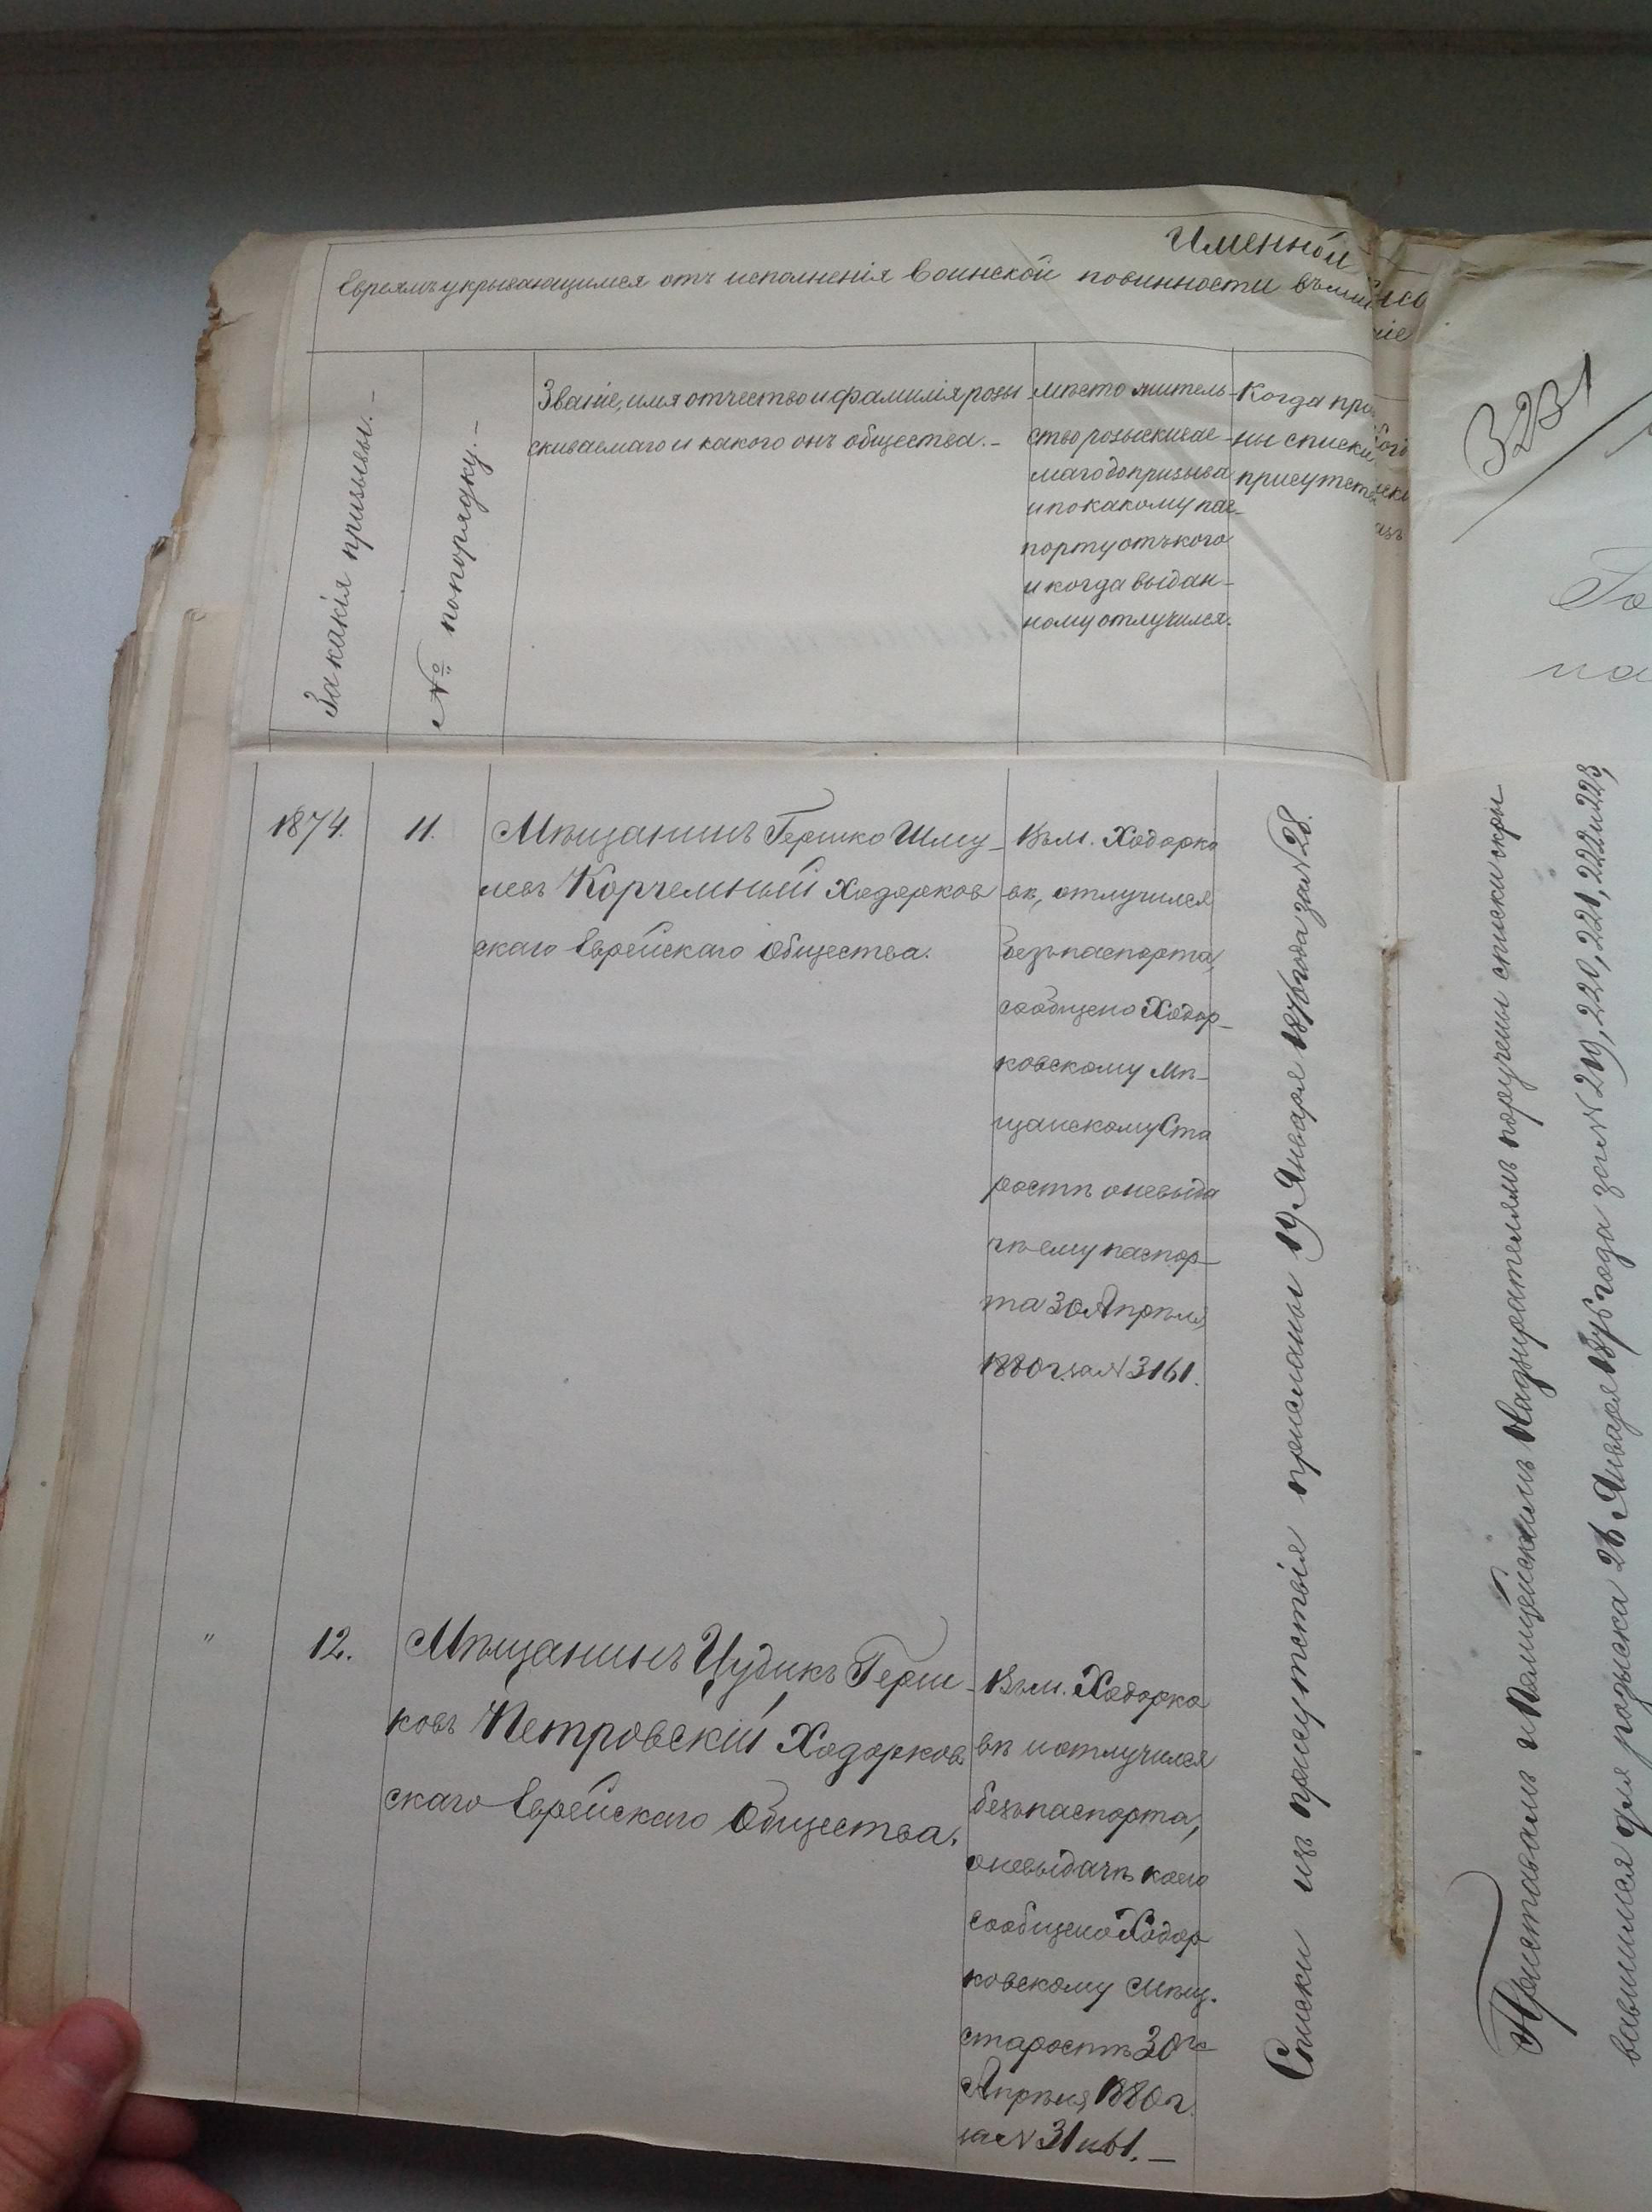 Именной
Евреямъ укрывающимся отъ исполненія воинской повинности
За какія призывы. –
№ попорядку. –
Званіе, имя отчество и фамилія розы
скиваемаго и какого онъ общества. –
мѣсто житель-
ство розыскивае-
маго до призыва
и по какому пас-
порту отъ кого
и когда выдан-
ному отлучился.
Когда при
ны списки
присутств
1874.
11.
Мѣщанинъ Гершко Шму-
левъ Корчемный Ходорков
скаго Еврейскаго Общества.
Въ м. Ходорко
вк, отлучился
безъ паспорта,
сообщено Ходор-
ковскому Мѣ-
щанскому Ста
ростѣ о невыда
чѣ ему паспор-
та 30 Апрѣля
1880 г. за № 3161.
"
12.
Мѣщанинъ Цудикъ Герш-
ковъ Петровскій Ходорков
скаго Еврейскаго Общества.
Въ м. Ходорко
вѣ и отлучился
безъ паспорта,
о невыдачѣ коего
сообщено Ходор
ковскому Мѣщ.
старостѣ 30го
Апрѣля 1880 г.
за № 3161. –
Списки изъ присутствія присланы 19 Января 1876 года за № 28.
3231
Го
па
Приставамъ и Полицейскимъ Надзирателямъ поручены списки скры
вавшимся для розыска 26 Января 1876 года за № 219, 220, 221, 222 и 223,